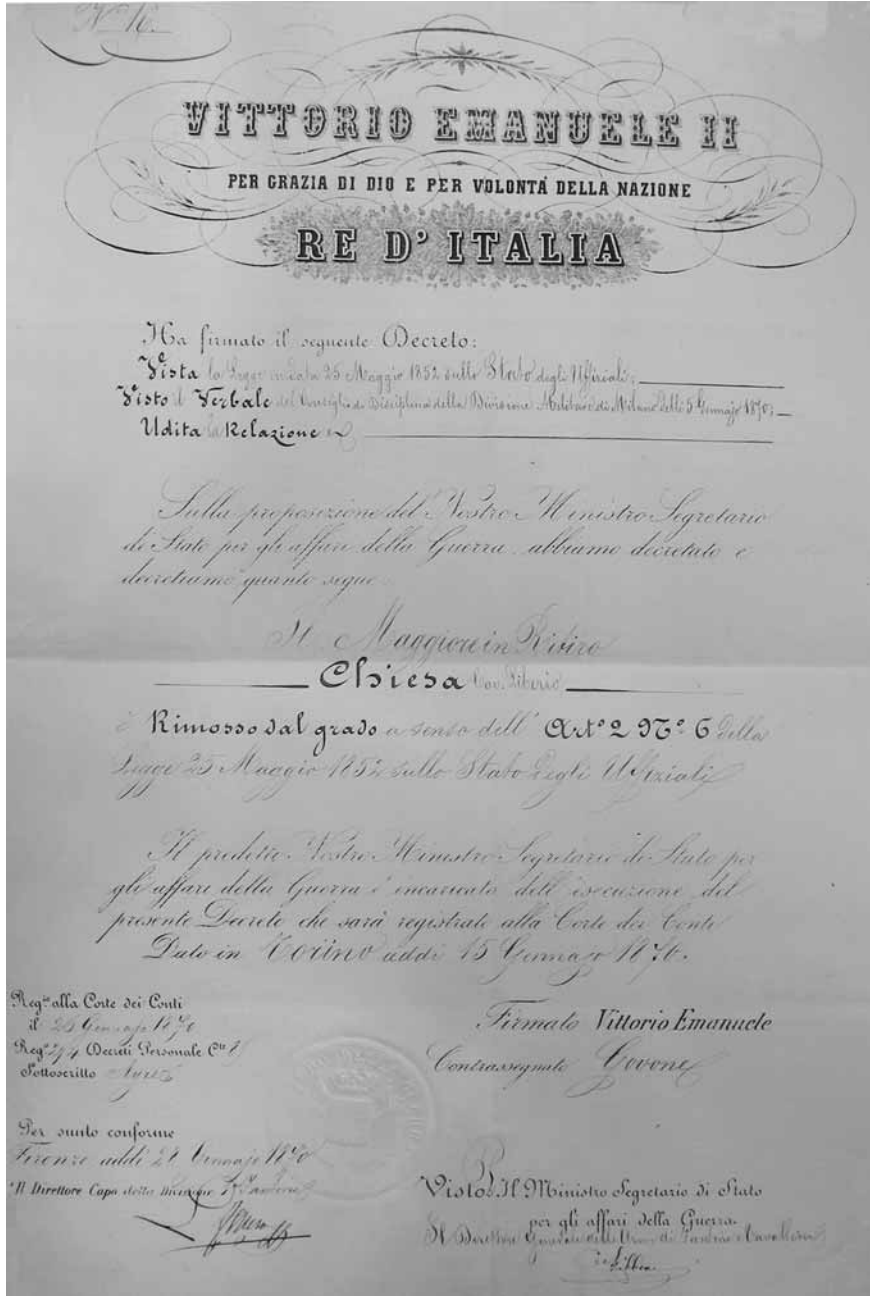 N° 16.
VITTORIO EMANUELE II
PER GRAZIA DI DIO E PER VOLONTÁ DELLA NAZIONE
RE D' ITALIA
Ha firmato il seguente Decreto:
Vista la Legge in data 25 Maggio 1852 sullo Stato degli Uffiziali;
Visto il Verbale del Consiglio di Disciplina della Divisione Militare di Milano delli 5 Gennajo 1870;
Udita la Relazione
Sulla proposizione del Nostro Ministro Segretario
di Stato per gli affari della Guerra abbiamo decretato e
decretiamo quanto segue
Il Maggiore in Ritiro
Chiesa Cav. Liberio
è Rimosso dal grado a senso dell' Art.° 2 N.° 6 della
Legge 25 Maggio 1852 sullo Stato degli Uffiziali
Il predetto Nostro Ministro Segretario di Stato per
gli affari della Guerra è incaricato dell' esecuzione del
presente Decreto che sarà registrato alla Corte dei Conti
Dato in Torino addì 15 Gennajo 1870.
Reg.to alla Corte dei Conti
il Gennajo 1870
Reg.° Decreti Personale
Sottoscritto
Firmato Vittorio Emanuele
Contrassegnato Govone
Per sunto conforme
Firenze addì Gennajo 1870
Il Direttore Capo della Divisione
Visto: Il Ministro Segretario di Stato
per gli affari della Guerra
Il Direttore Generale delle Armi di Fanteria e Cavalleria